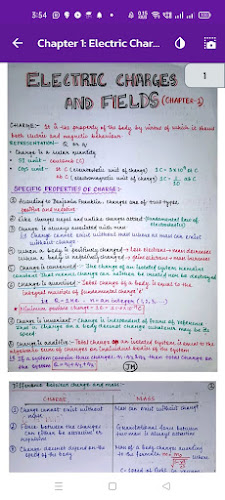 3:54
Chapter 1: Electric Char...
1
ELECTRIC CHARGES
AND FIELDS (CHAPTER-1)
CHARGE:- It is the property of the body by virtue of which it
both electric and magnetic behaviour.
REPRESENTATION:- Q or q
Charge is a scalar quantity
SI unit - coulomb (C)
CGS unit
SPECIFIC PROPERTIES OF CHARGE:-
① According to Benjamin Franklin, charges are of two types
positive and negative
② Like charges repel and unlike charges attract (Fundamental law of
Electrostatics)
③ Charge is always associated with mass
Charge cannot exist without mass
without charge
When a body is positively charged → lose electrons → mass decreases
When a body is negatively charged → gains electrons → mass increases
④ Charge is conserved:- The charge of an isolated system remains
constant that means charge can neither be created nor be destroyed
⑤ Charge is quantised:- Total charge of a body is equal to the
integral multiple of fundamental charge 'e'
⑥ Charge is invariant:- Charge is independent of frame of reference
that is charge on a body doesnot change whatever may be its
speed
⑦ Charge is additive:- Total charge of an isolated system is equal to the
algebraic sum of charges on individual bodies of the system
If a system contains three charges
the system
Difference between charge and mass:-
CHARGE MASS
① Charge cannot exist without mass
Mass can exist without charge
② Force between the charges can either be attractive or repulsive
Gravitational force between two mass is always attractive
③ Charge doesnot depend on the speed of the body
Mass of a body changes according to the formula